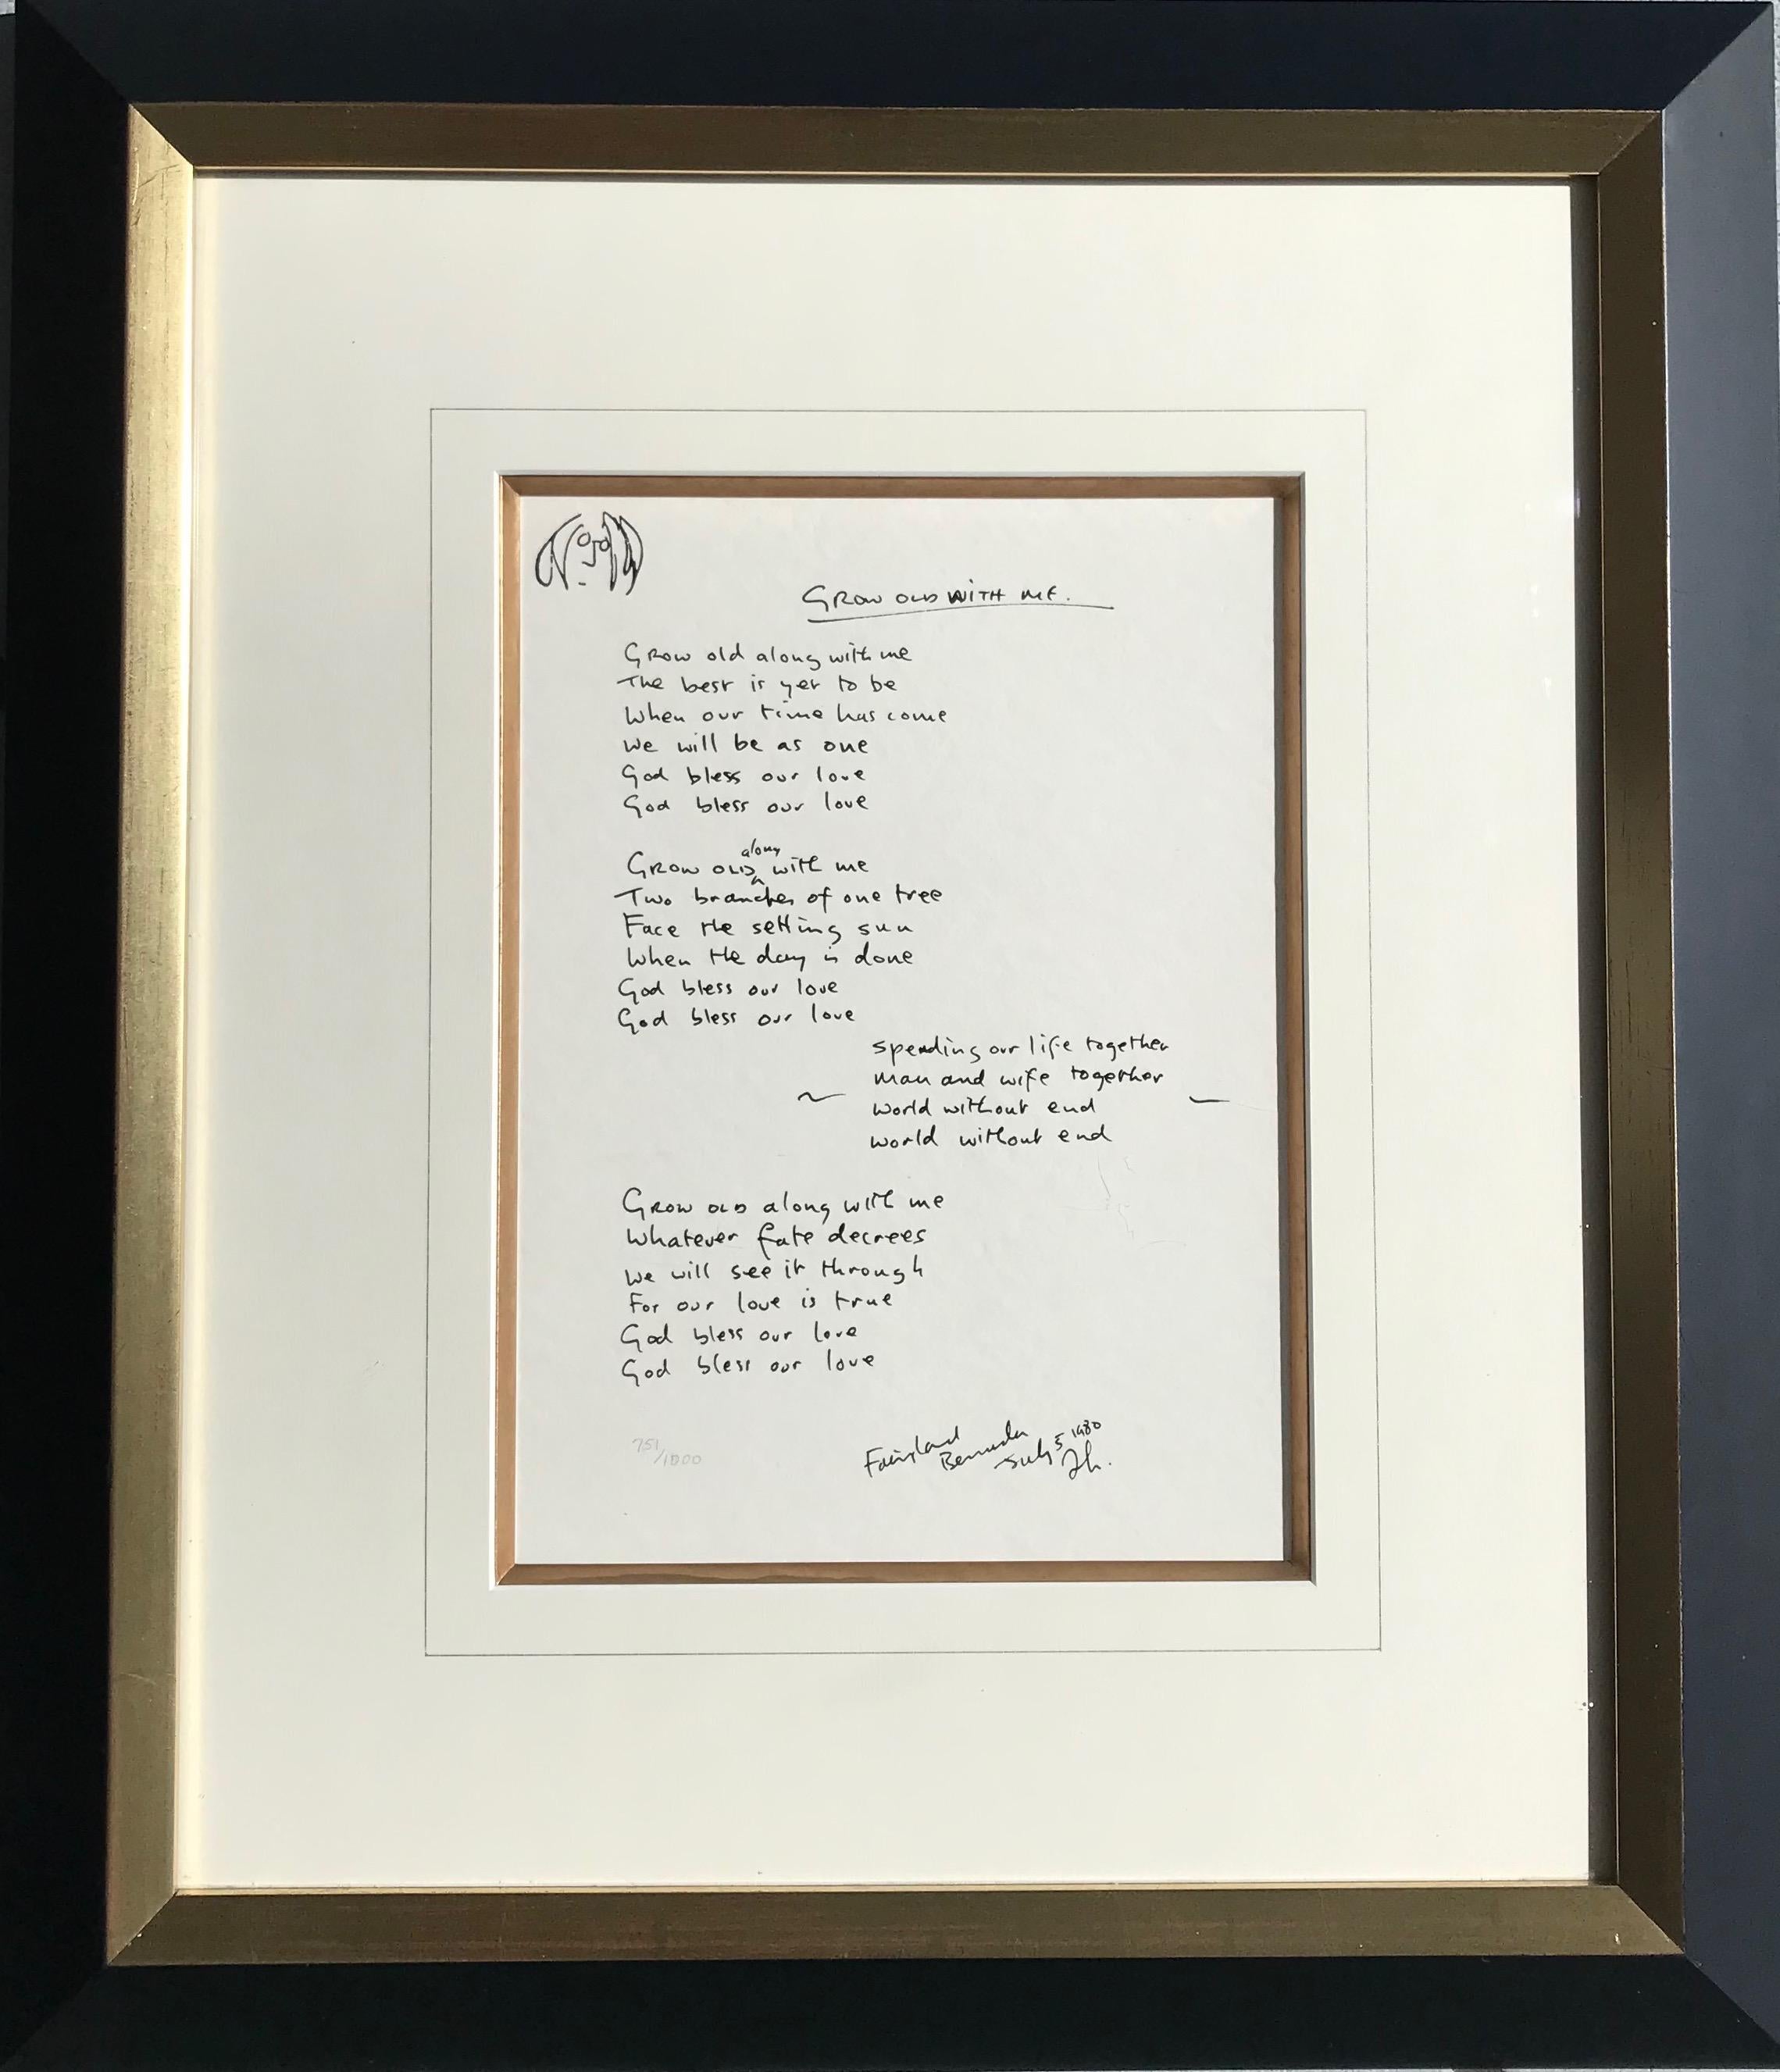 GROW OLD WITH ME.
Grow old along with me
The best is yet to be
When our time has come
We will be as one
God bless our love
God bless our love
along
GROW OLD with me
Two branches of one tree
Face the setting sun
When the day is done
God bless our love
God bless our love
spending our life together
man and wife together
world without end
world without end
GROW OLD along with me
Whatever fate decrees
We will see it through
For our love is true
God bless our love
God bless our love
751/1000
Fairyland
Bermuda
July 5 1980